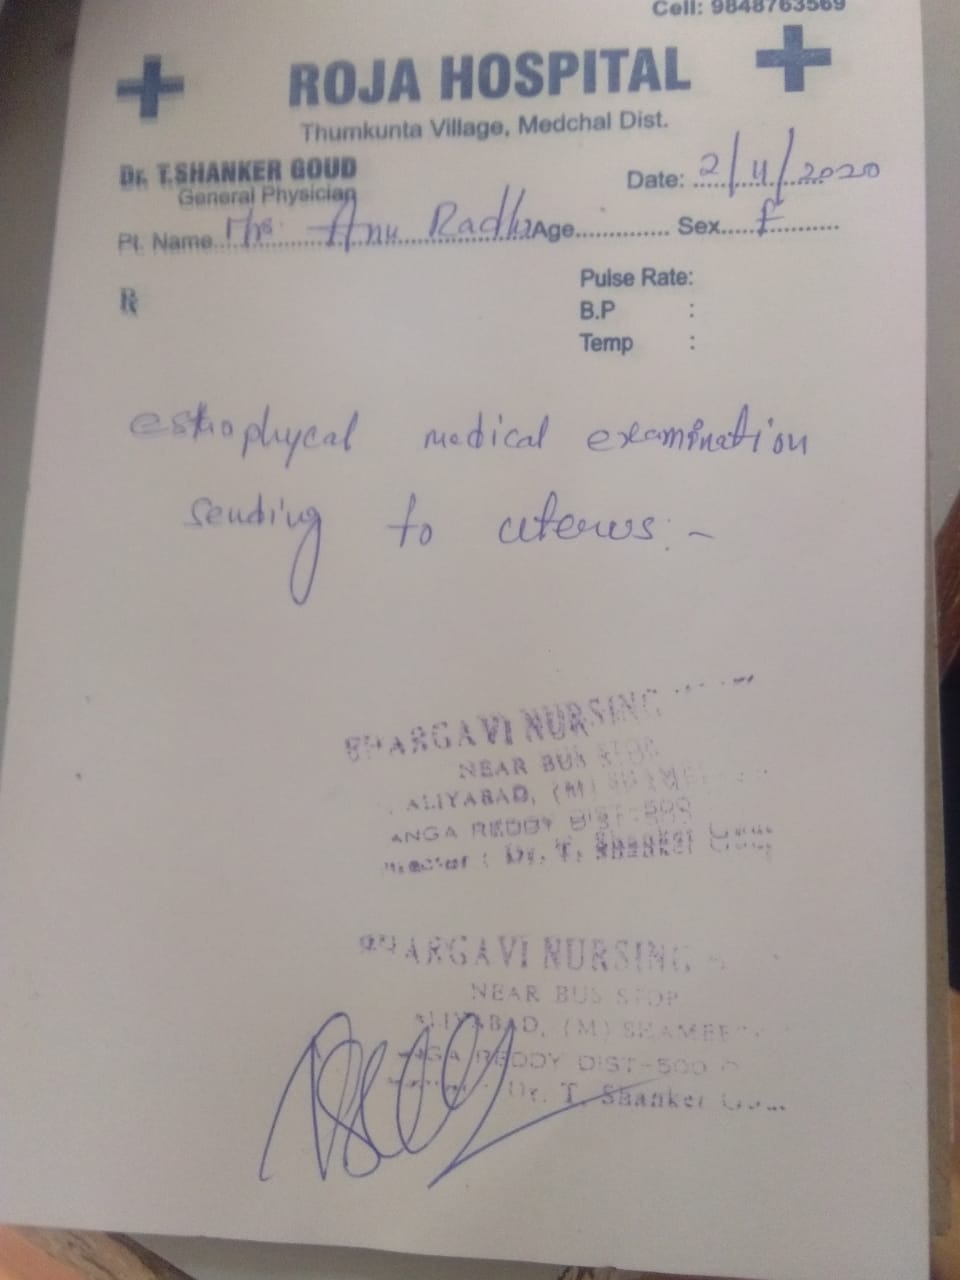 Cell: 9848763569
ROJA HOSPITAL
Thumkunta Village, Medchal Dist.
Dr. T.SHANKER GOUD
General Physician
Date: 2/11/2020
Pt. Name Mrs. Anu Radha Age Sex F
R
Pulse Rate:
B.P :
Temp :
esthophycal medical examination
sending to uterus:-
BHARGAVI NURSING
NEAR BUS STOP
ALIYABAD, (M) SHAMEE
ANGA REDDY DIST-500
Dr. T. Shanker Gou
BHARGAVI NURSING
NEAR BUS STOP
ALIYABAD, (M) SHAMEE
ANGA REDDY DIST-500
Dr. T. Shanker